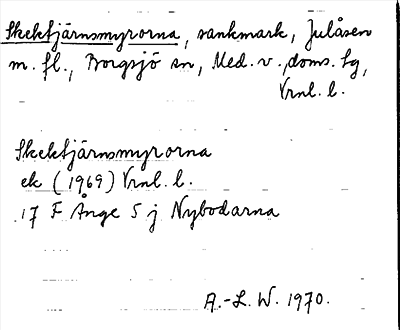 Skektjärnsmyrorna, sankmark, Julåsen
m. fl., Borgsjö sn, Med. v. doms. tg,
Vrnl. l.
Skektjärnsmyrorna
ek (1969) Vrnl. l.
17 F Ånge 5 j Nybodarna
A.-L. W. 1970.